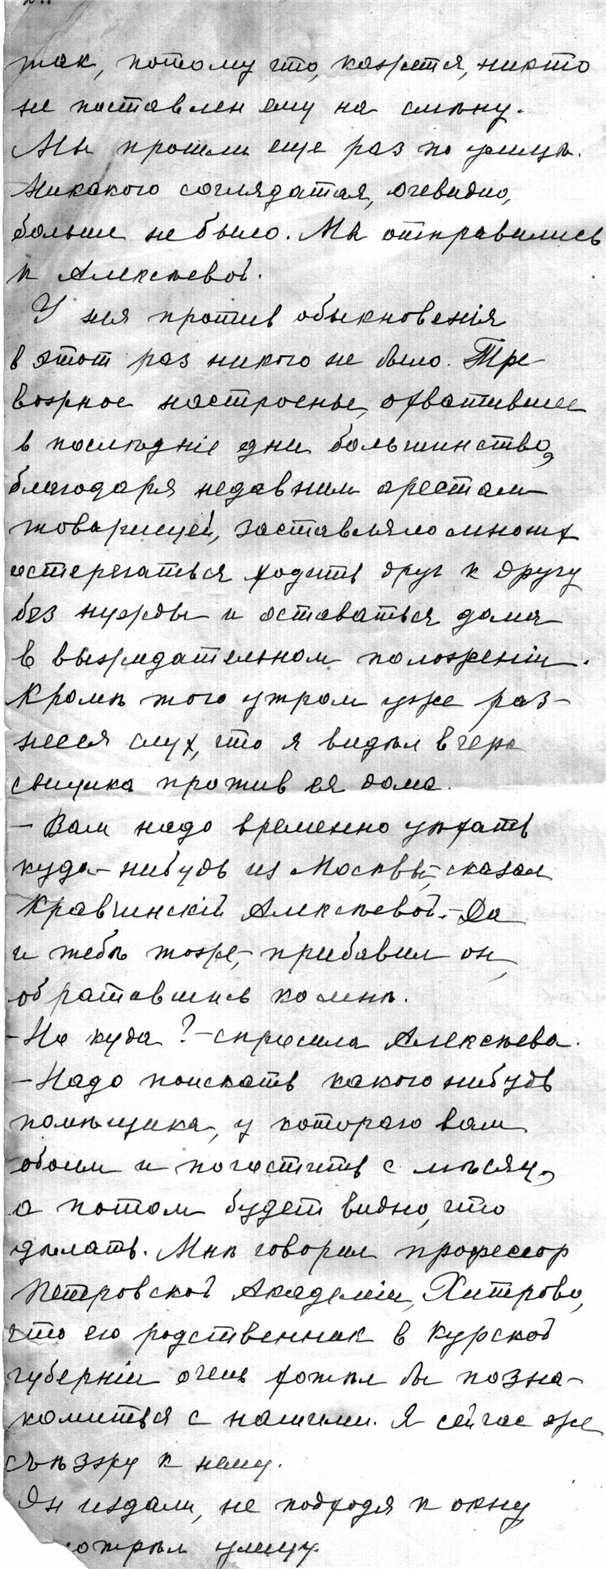 так, потому что, кажется, никто
не поставлен ему на смѣну.
Мы прошли еще раз по улицѣ.
Никакого соглядатая, очевидно,
больше не было. Мы отправились
к Алексѣевой.
У нея против обыкновенія
в этот раз никого не было. Тре-
вожное настроенье, охватившее
в послѣдніе дни большинство,
благодаря недавним арестам
товарищей, заставляло многих
остерегаться ходить друг к другу
без нужды и оставаться дома
в выжидательном положеніи.
Кромѣ того утром уже раз-
несся слух, что я видѣл вчера
сыщика против ея дома.
— Вам надо временно уѣхать
куда-нибудь из Москвы, — сказал
Кравчинскій Алексѣевой. — Да
и тебѣ тоже, — прибавил он,
обратившись ко мнѣ.
— Но куда? — спросила Алексѣева.
— Надо поискать какого нибудь
помѣщика, у котораго вам
обоим и погостить с мѣсяц,
а потом будет видно, что
дѣлать. Мнѣ говорил профессор
Петровской Академіи, Хитрово,
что его родственник в Курской
губерніи очень хотѣл бы позна-
комиться с нашими. Я сейчас же
съѣзжу к нему.
Он издали, не подходя к окну
осмотрѣл улицу.